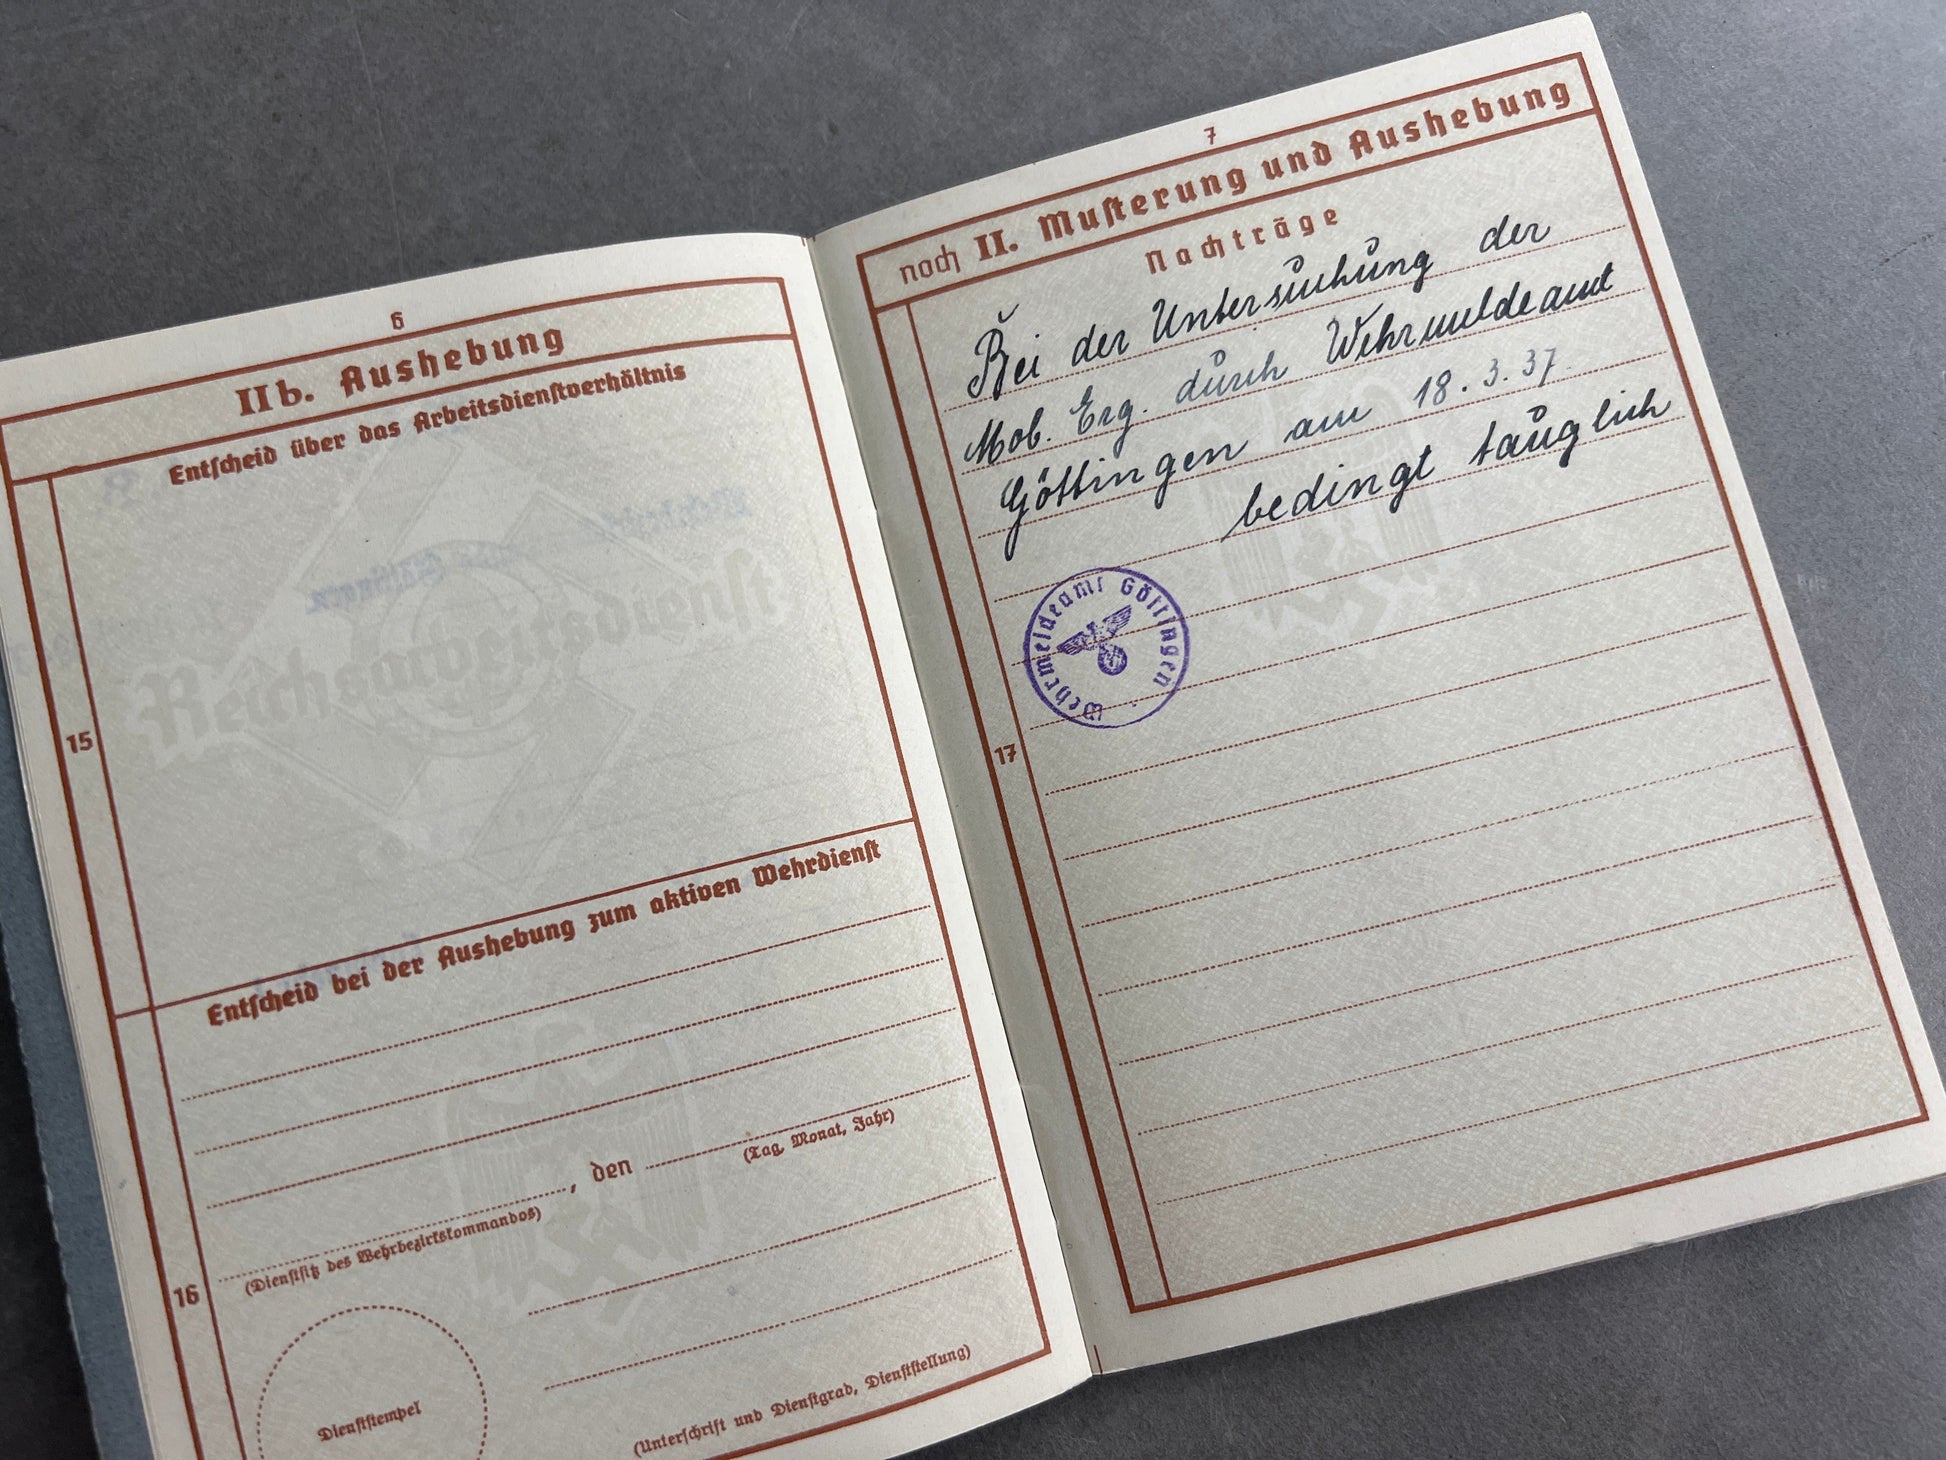 6
IIb. Aushebung
Entscheid über das Arbeitsdienstverhältnis
Reichsarbeitsdienst
15
Entscheid bei der Aushebung zum aktiven Wehrdienst
, den
(Tag, Monat, Jahr)
(Dienstsitz des Wehrbezirkskommandos)
16
Dienststempel
(Unterschrift und Dienstgrad, Dienststellung)
7
noch II. Musterung und Aushebung
Nachträge
Bei der Untersuchung der
Mob. Erg. durch Wehrmeldeamt
Göttingen am 18.3.37.
bedingt tauglich
Wehrmeldeamt Göttingen
17